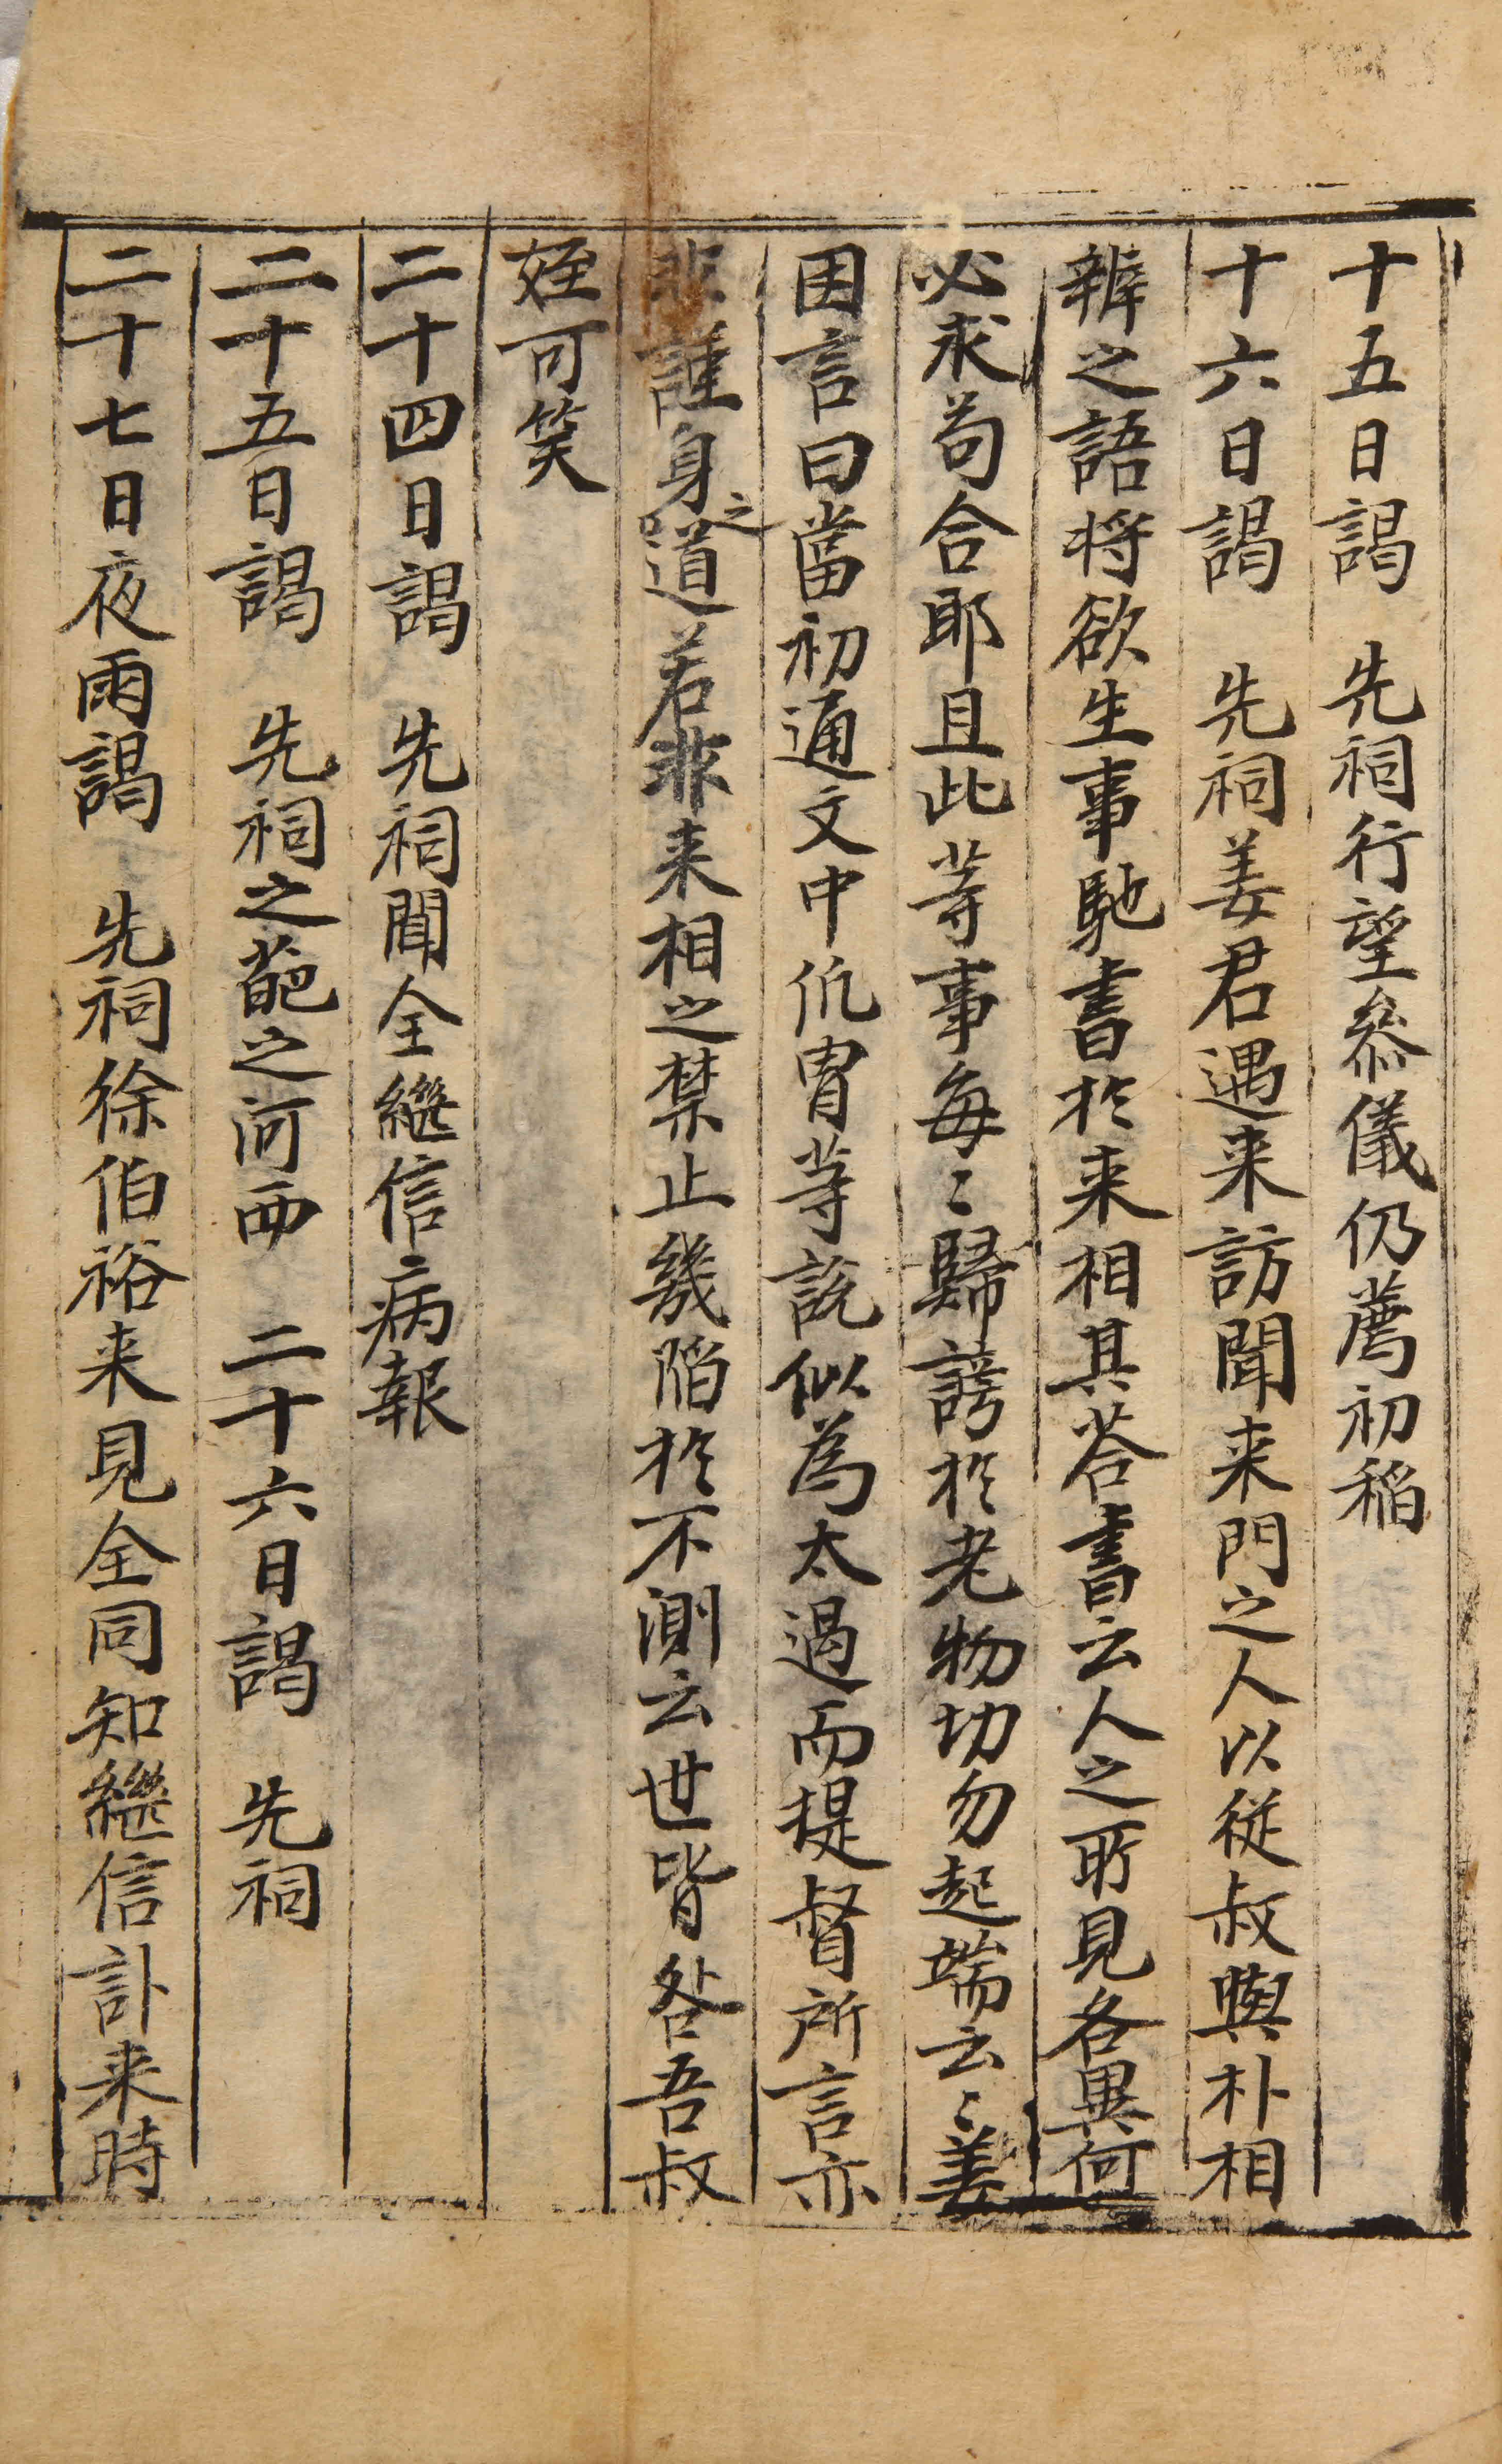 十五日謁　先祠行望叅儀仍薦初稲
十六日謁　先祠姜君遇来訪聞来門之人以從叔與朴相
辨之語将欲生事馳書於来相其荅書云人之所見各異何
必求苟合耶且此等事每〻歸謗於老物切勿起端云〻姜
因言曰當初通文中仇胄等説似為太過而提督所言亦
非謹身之道若非来相之禁止幾陷於不測云世皆咎吾叔
姪可笑
二十四日謁　先祠聞全繼信病報
二十五日謁　先祠之葩之河西　二十六日謁　先祠
二十七日夜雨謁　先祠徐伯裕来見全同知繼信訃来時